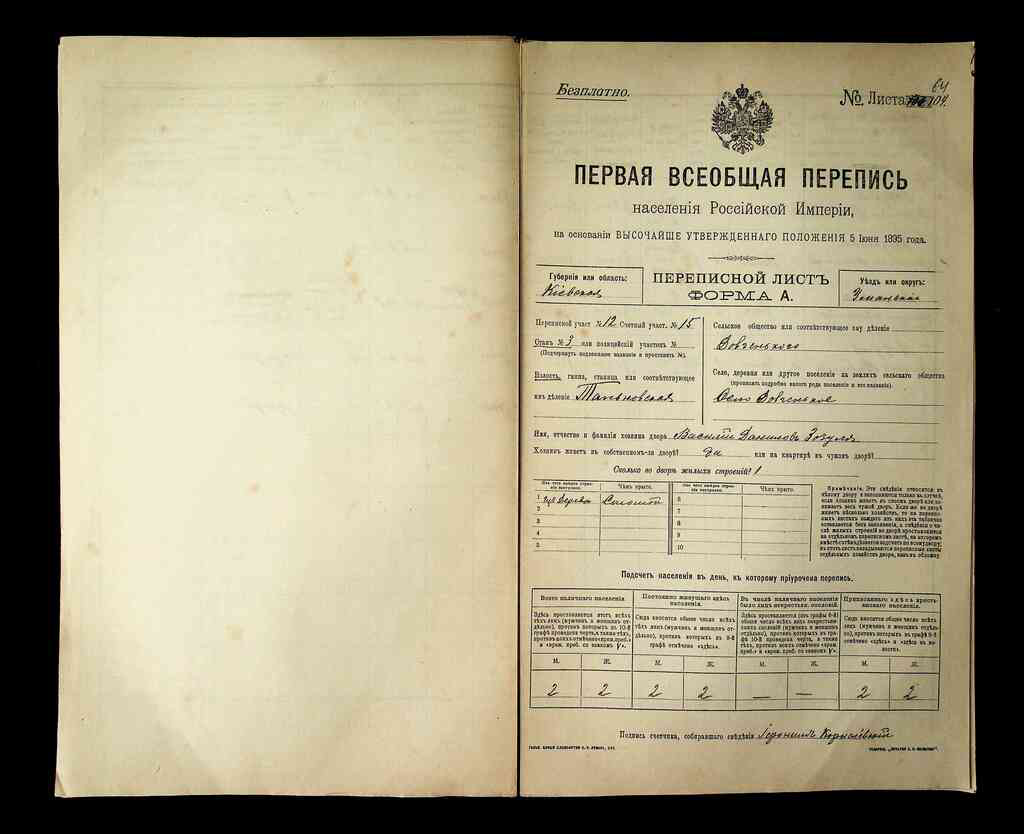 Безплатно.
№ Листа 104.
64
ПЕРВАЯ ВСЕОБЩАЯ ПЕРЕПИСЬ
населенія Россійской Имперіи,
на основаніи ВЫСОЧАЙШЕ УТВЕРЖДЕННАГО ПОЛОЖЕНІЯ 5 Іюня 1895 года.
Губернія или область:
Кіевская
ПЕРЕПИСНОЙ ЛИСТЪ
ФОРМА А.
Уѣздъ или округъ:
Уманьскій
Переписной участ. № 12 Счетный участ. № 15
Станъ № 3 или полицейскій участокъ №
(Подчеркнуть подлежащее названіе и проставить №).
Волость, гмина, станица или соотвѣтствующее
имъ дѣленіе Тальновская
Сельское общество или соотвѣтствующее ему дѣленіе
Село, деревня или другое поселеніе на земляхъ сельскаго общества
(прописать подробно какого рода поселеніе и его названіе).
Село
Имя, отчество и фамилія хозяина двора Василій Даниловъ Зозуля
Хозяинъ живетъ въ собственномъ-ли дворѣ? да или на квартирѣ въ чужомъ дворѣ?
Сколько во дворѣ жилыхъ строеній? 1
Изъ чего каждое строеніе построено.
Чѣмъ крыто.
Изъ чего каждое строеніе построено.
Чѣмъ крыто.
1 Дерева Соломой
2
3
4
5
6
7
8
9
10
Примѣчаніе. Эти свѣдѣнія относятся къ
цѣлому двору и заполняются только въ случаѣ,
если хозяинъ живетъ въ своемъ дворѣ или за-
нимаетъ весь чужой дворъ. Если же во дворѣ
живетъ нѣсколько хозяйствъ, то на перепис-
ныхъ листахъ каждаго изъ нихъ эта табличка
оставляется безъ заполненія, а свѣдѣнія о чи-
слѣ жилыхъ строеній во дворѣ проставляются
на отдѣльномъ переписномъ листѣ, на которомъ
Подсчетъ населенія въ день, къ которому пріурочена перепись.
Всего наличнаго населенія.
Здѣсь проставляется итогъ всѣхъ
тѣхъ лицъ (мужчинъ и женщинъ от-
дѣльно), противъ которыхъ въ 10-й
графѣ проведена черта, а также тѣхъ,
противъ коихъ отмѣчено «врем. преб.»
Постоянно живущаго здѣсь
населенія.
Сюда вносится общее число всѣхъ
тѣхъ лицъ (мужчинъ и женщинъ от-
дѣльно), противъ которыхъ въ 9-й
графѣ отмѣчено «здѣсь».
Въ числѣ наличнаго населенія
было лицъ некрестьян. сословій.
Здѣсь проставляется (изъ графы 6-й)
общее число всѣхъ лицъ некрестьян-
скихъ сословій (мужчинъ и женщинъ
отдѣльно), противъ которыхъ въ гра-
фѣ 10-й проведена черта, а также
тѣхъ, противъ коихъ отмѣчено «врем.
преб.»
Приписаннаго здѣсь кресть-
янскаго населенія.
Сюда вносится общее число всѣхъ
лицъ (мужчинъ и женщинъ отдѣль-
но), противъ которыхъ въ графѣ 8-й
отмѣчено «здѣсь» и «здѣсь въ во-
лости».
М. Ж. М. Ж. М. Ж. М. Ж.
2 2 2 2 — — 2 2
Подпись счетчика, собиравшаго свѣдѣнія